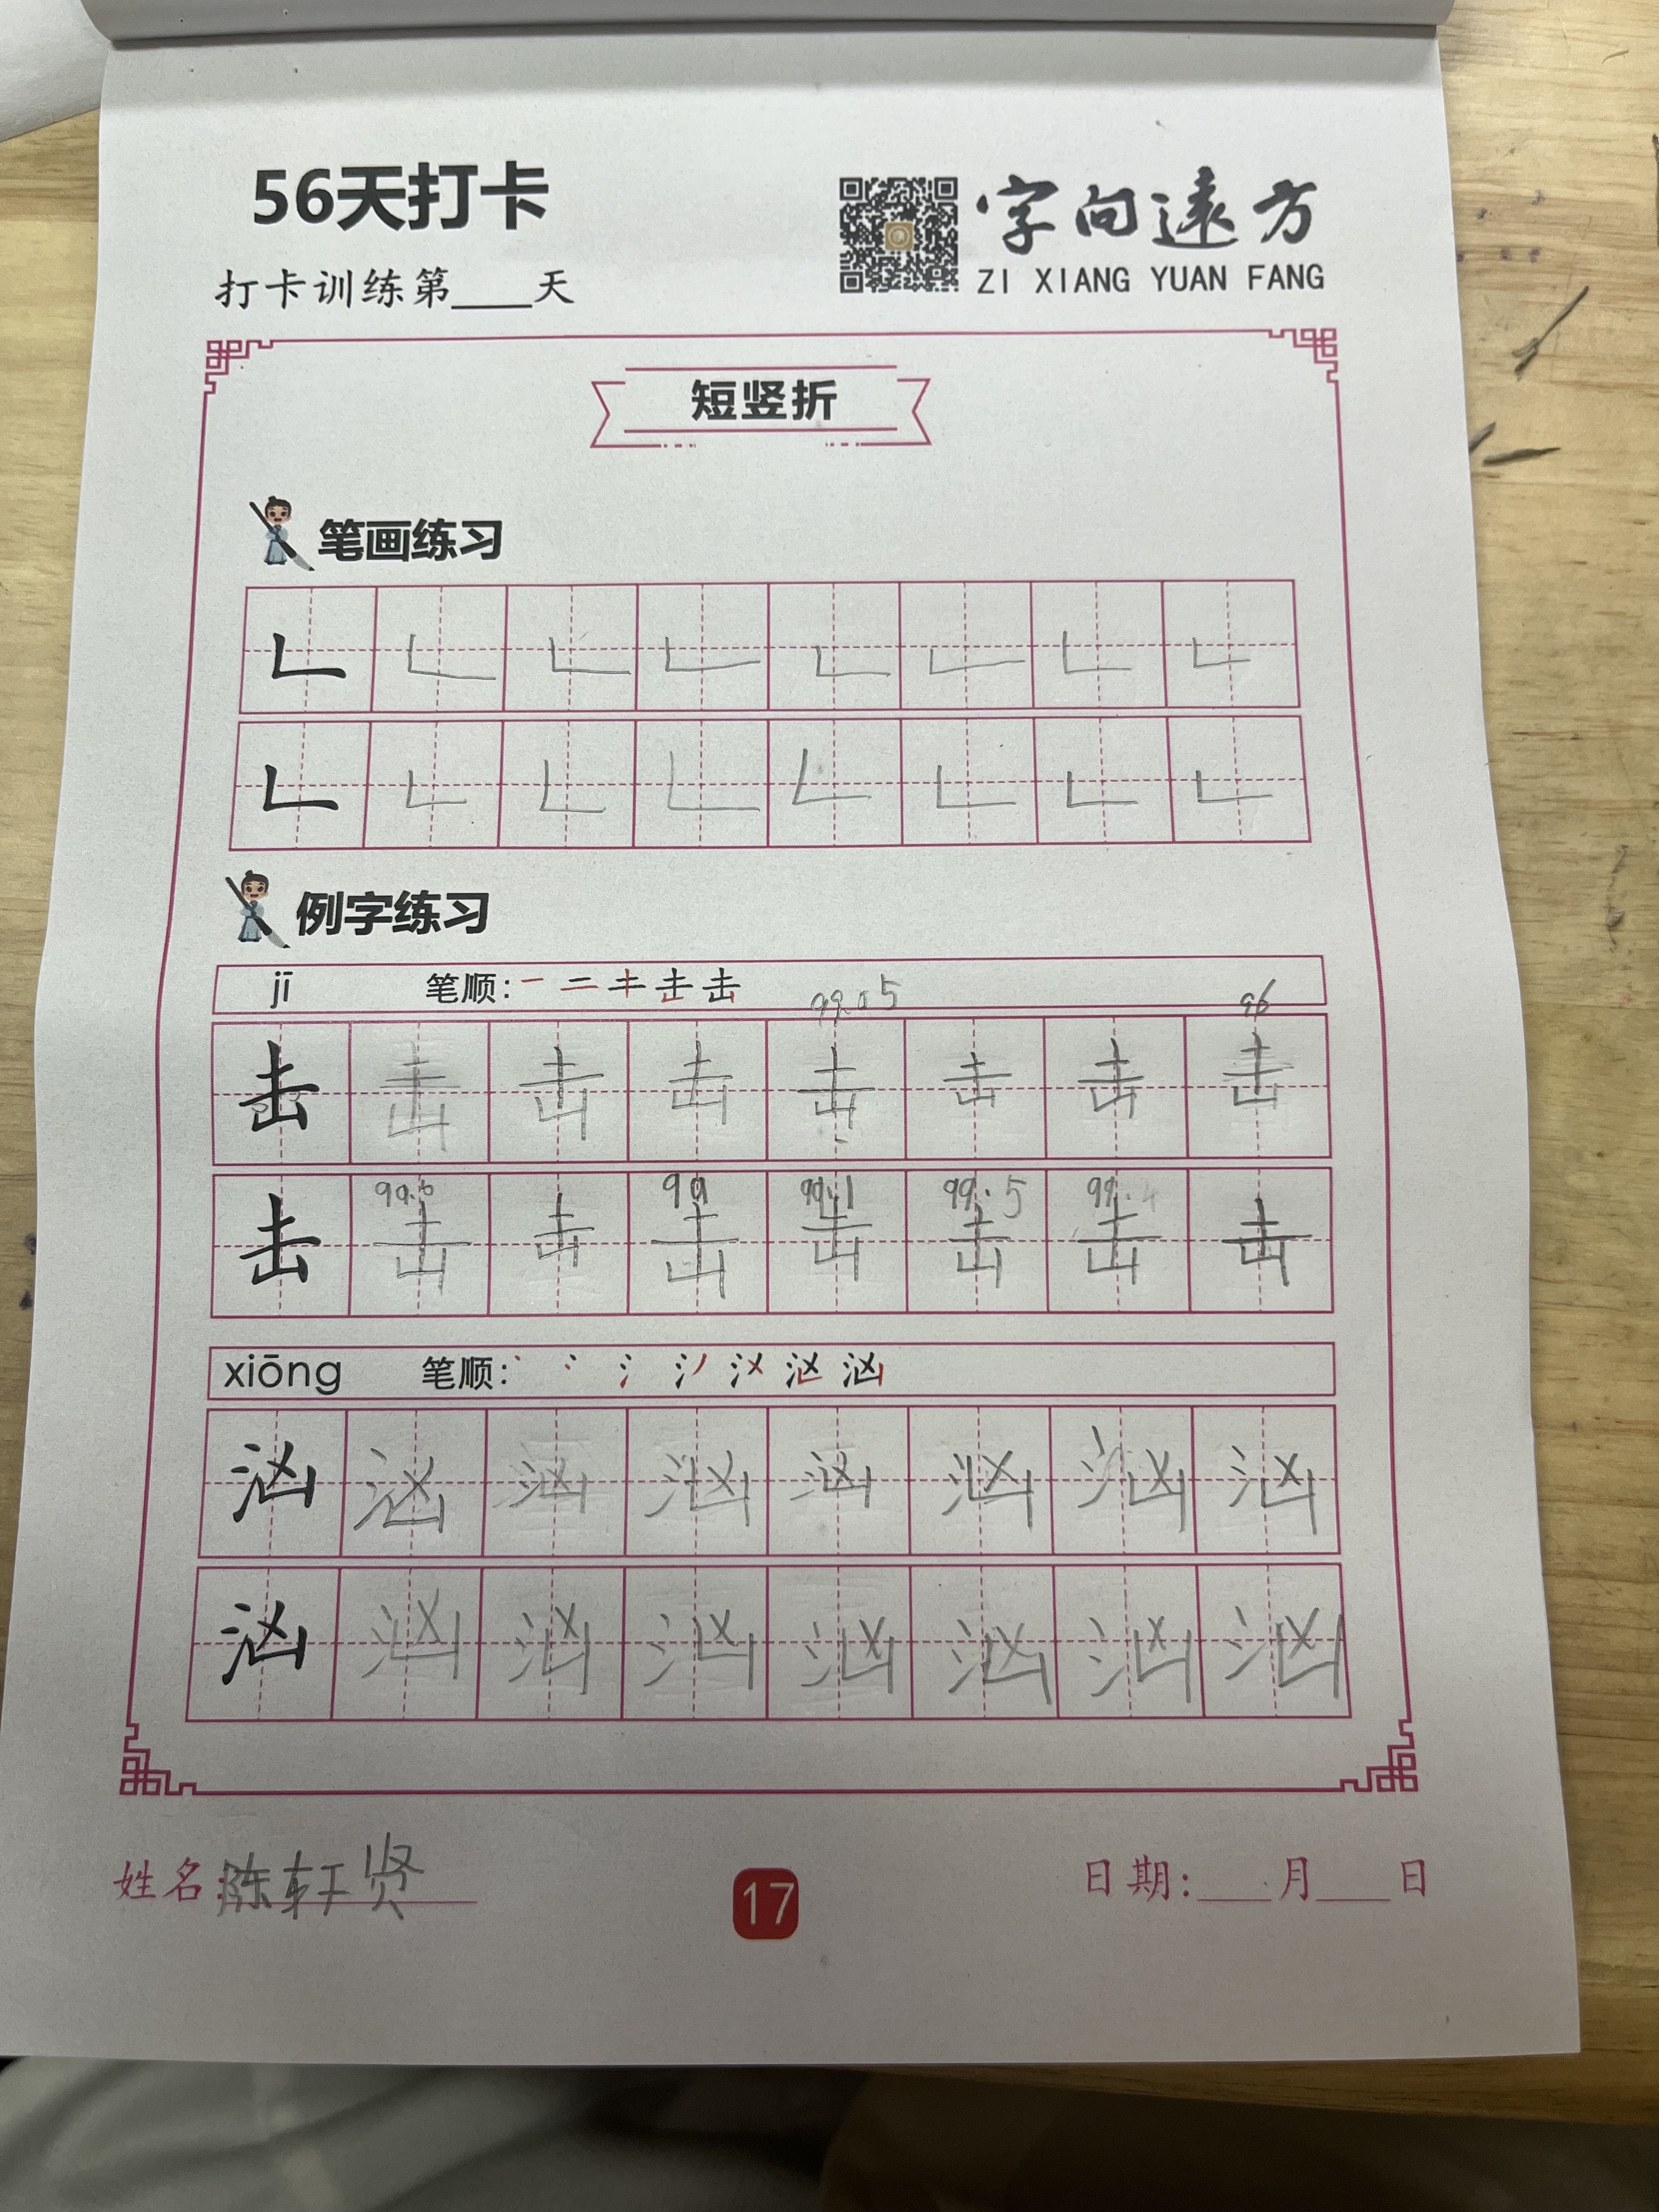 56天打卡
字向遠方
打卡训练第____天
ZI XIANG YUAN FANG
短竖折
笔画练习
𠃊 𠃊 𠃊 𠃊 𠃊 𠃊 𠃊 𠃊
𠃊 𠃊 𠃊 𠃊 𠃊 𠃊 𠃊 𠃊
例字练习
jī 笔顺: 击
99.5 96
击 击 击 击 击 击 击 击
99 99.1 99.5 99.4
击 击 击 击 击 击 击 击
xiōng 笔顺: 汹
汹 汹 汹 汹 汹 汹 汹 汹
汹 汹 汹 汹 汹 汹 汹 汹
姓名:陈轩贤
17
日期:____月____日